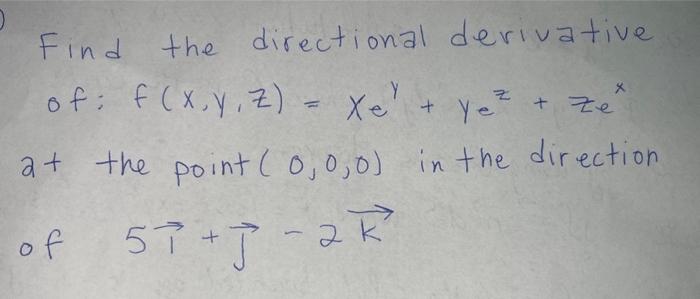 Find the directional derivative
of: f(x,y,z) = xe^y + ye^z + ze^x
at the point (0,0,0) in the direction
of 5i⃗ + j⃗ - 2k⃗